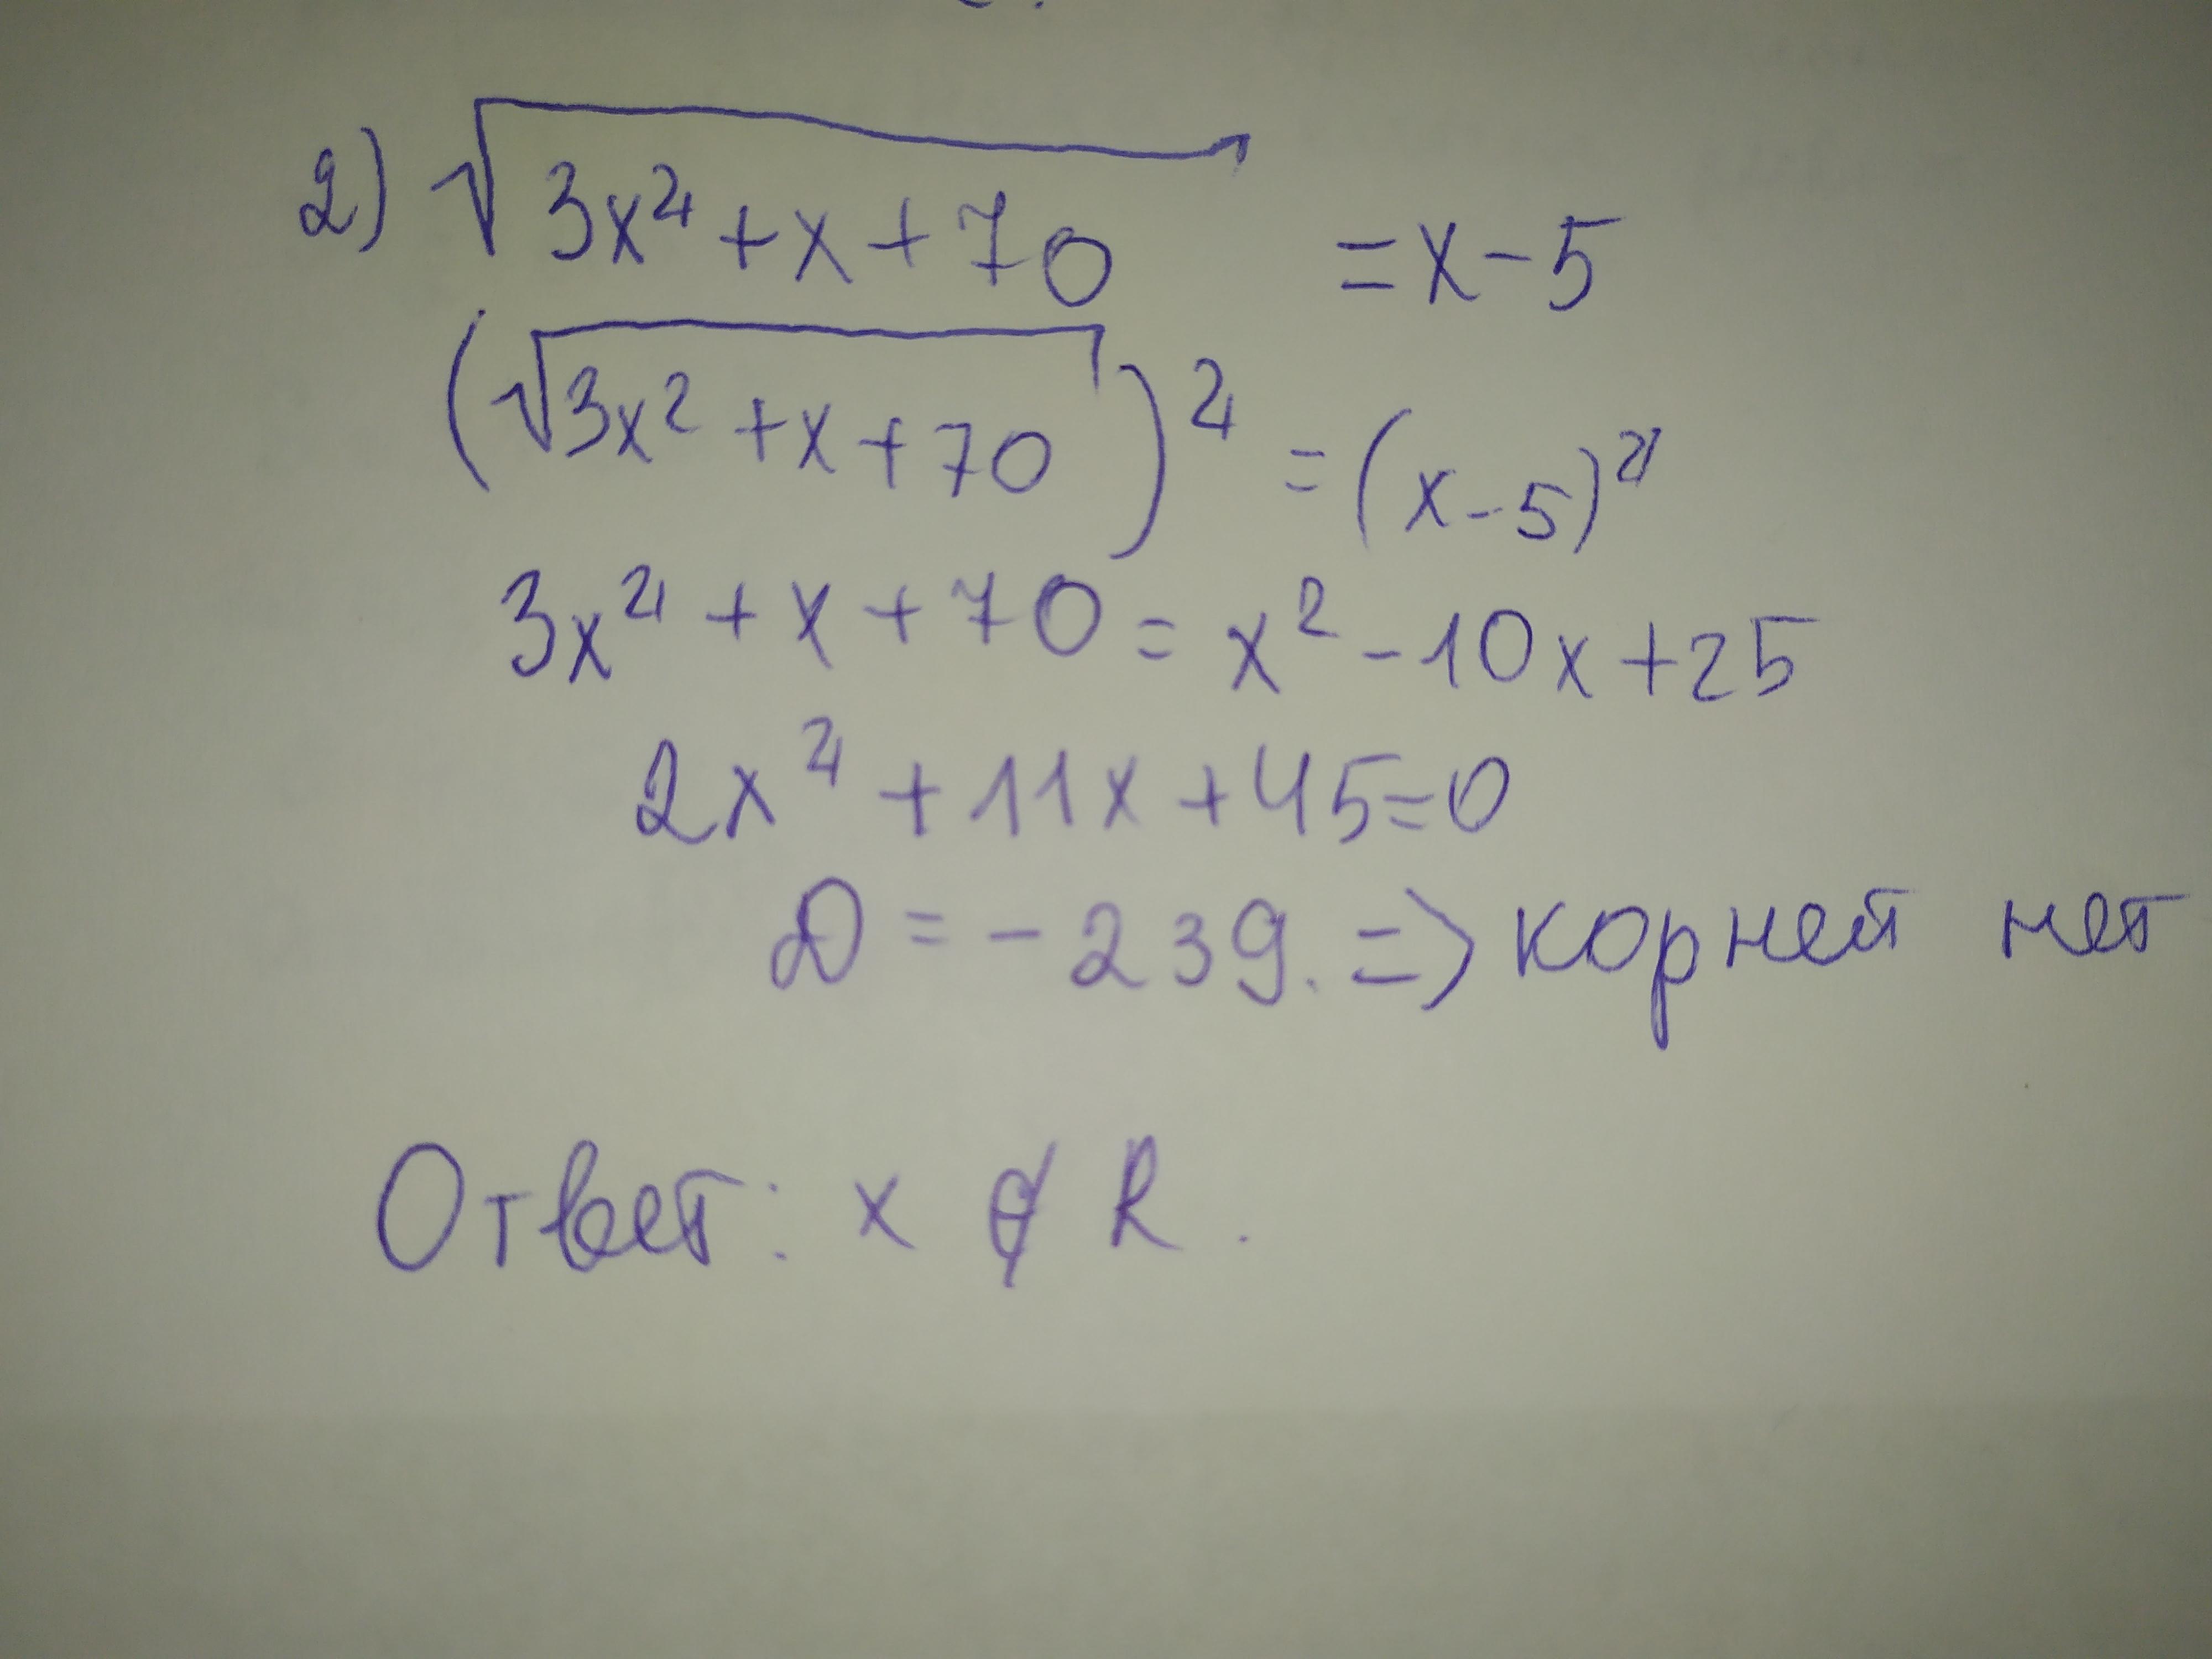 2) √(3x² + x + 70) = x - 5
(√(3x² + x + 70))² = (x - 5)²
3x² + x + 70 = x² - 10x + 25
2x² + 11x + 45 = 0
D = - 239. => корней нет
Ответ: x ∉ R.